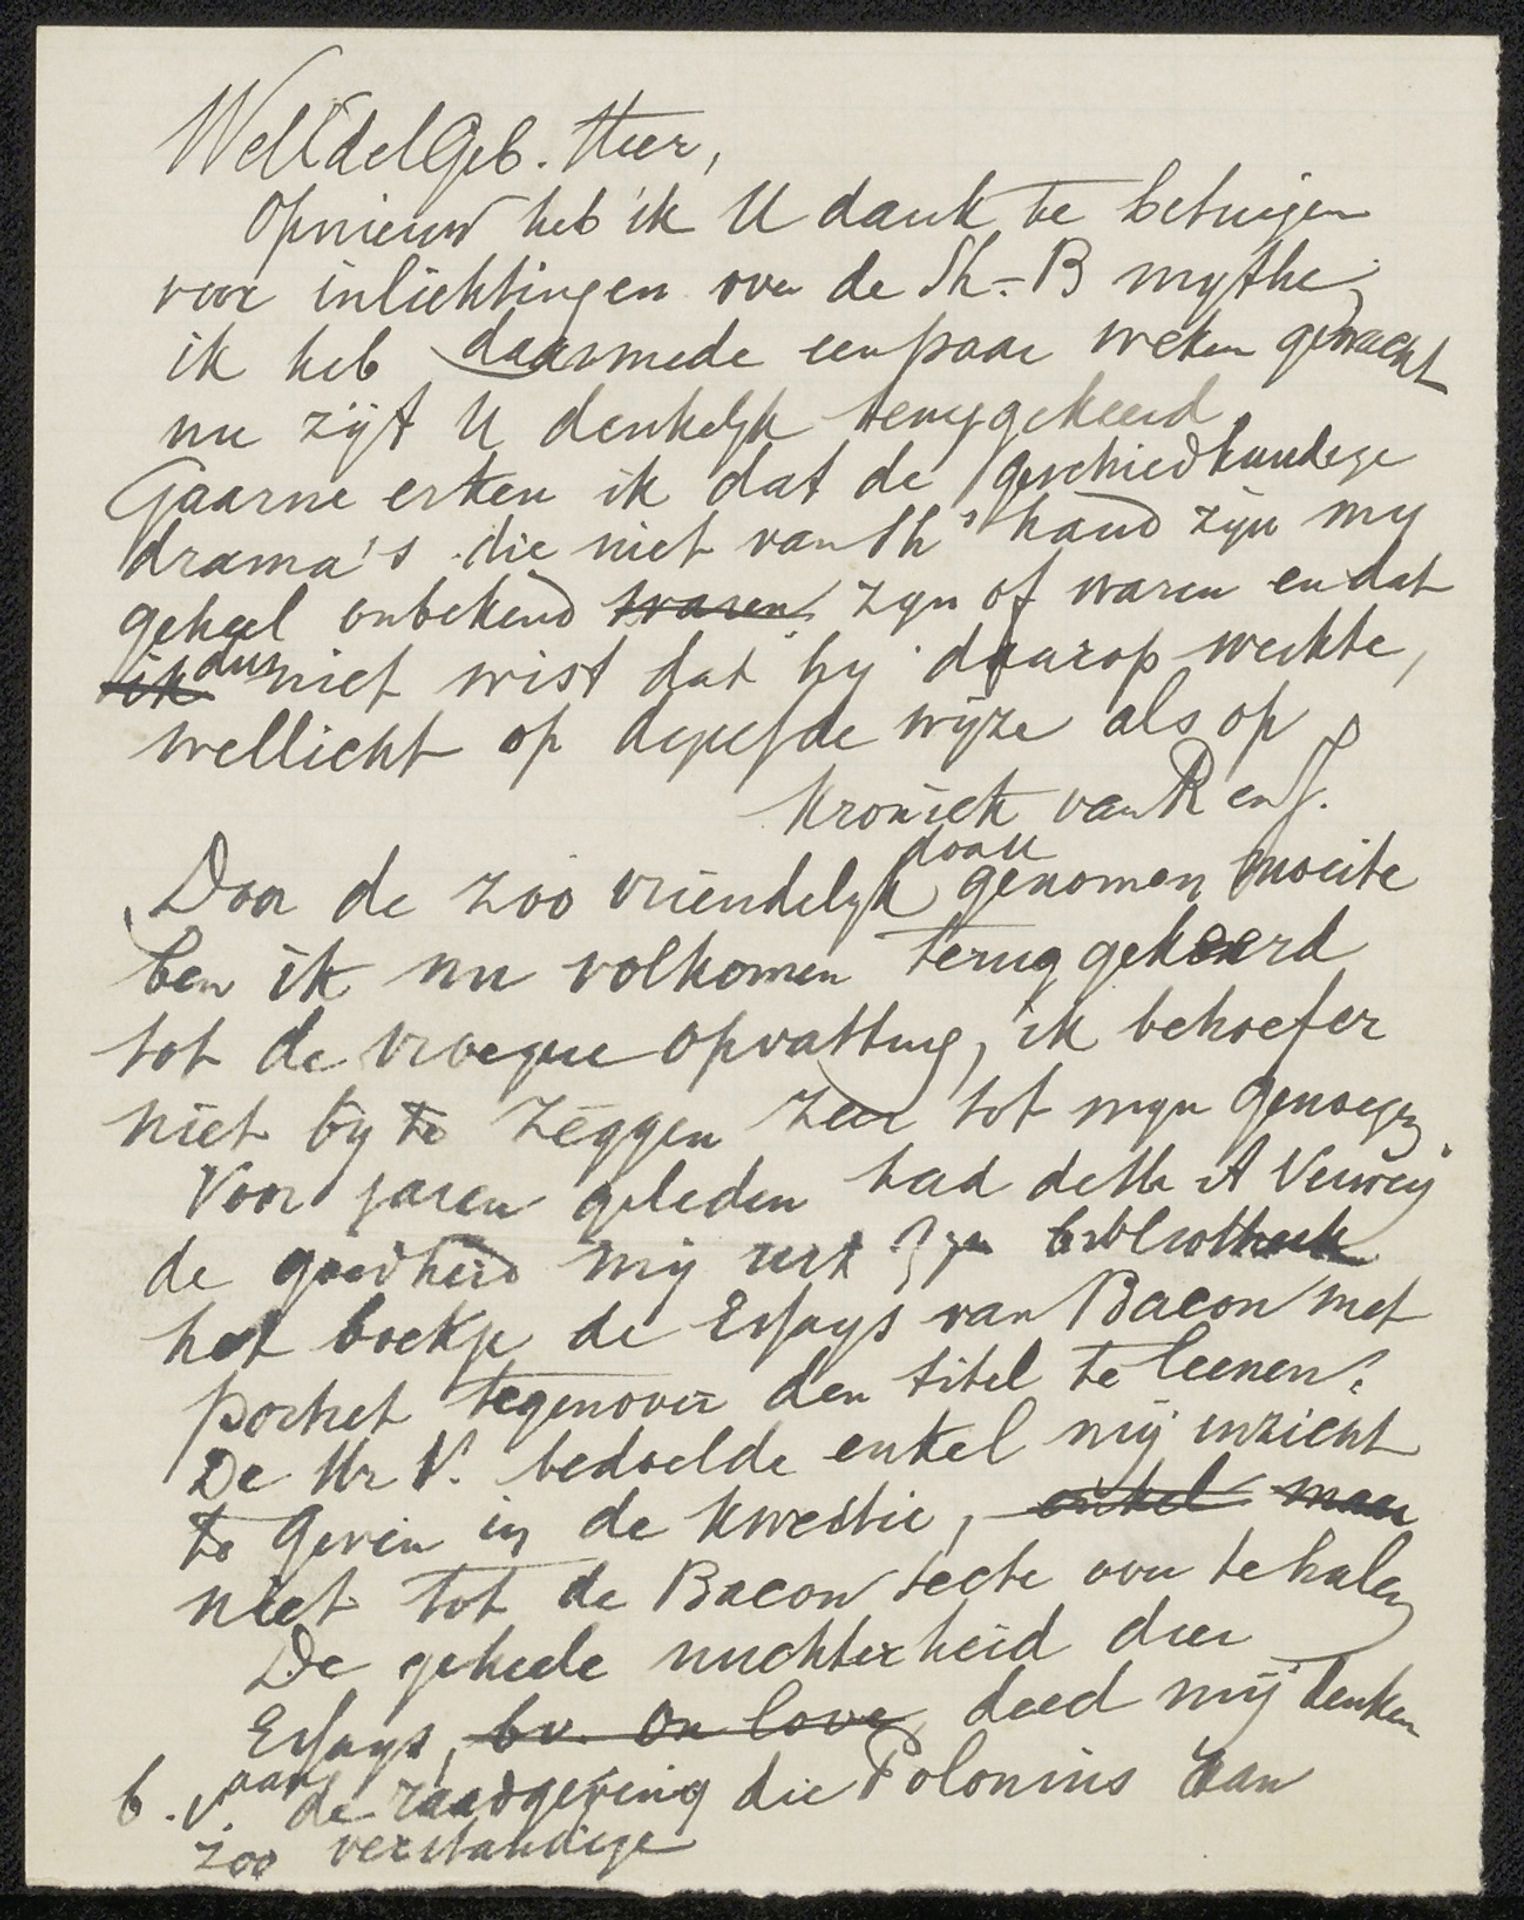 WelEdelGeb. Heer,
Opnieuw heb ik U dank te betuigen
voor inlichtingen over de Sh.-B mythe,
ik heb daarmede een paar weken gewacht
nu zijt U denkelijk teruggekeerd.
Gaarne erken ik dat de geschiedkundige
drama's die niet van Sh's hand zijn my
geheel onbekend waren zyn of waren en dat
ik dus niet wist dat hy daarop werkte,
wellicht op dezelfde wijze als op
Kroniek van R en J.
Door de zoo vriendelyk door U genomen moeite
ben ik nu volkomen teruggekeerd
tot de vroegere opvatting, ik behoef er
niet by te zeggen zeer tot myn genoegen.
Voor jaren geleden had de Hr A Verweij
de goedheid mij uit zyn bibliotheek
het boekje de Essays van Bacon met
portret tegenover den titel te leenen.
De Hr V. bedoelde enkel mij inzicht
te geven in de kwestie, enkel maar
niet tot de Bacon secte over te halen
De geheele nuchterheid dier
Essays, bv. On love, deed mij denken
b.v. aan de raadgeving die Polonius aan
zoo verstandige